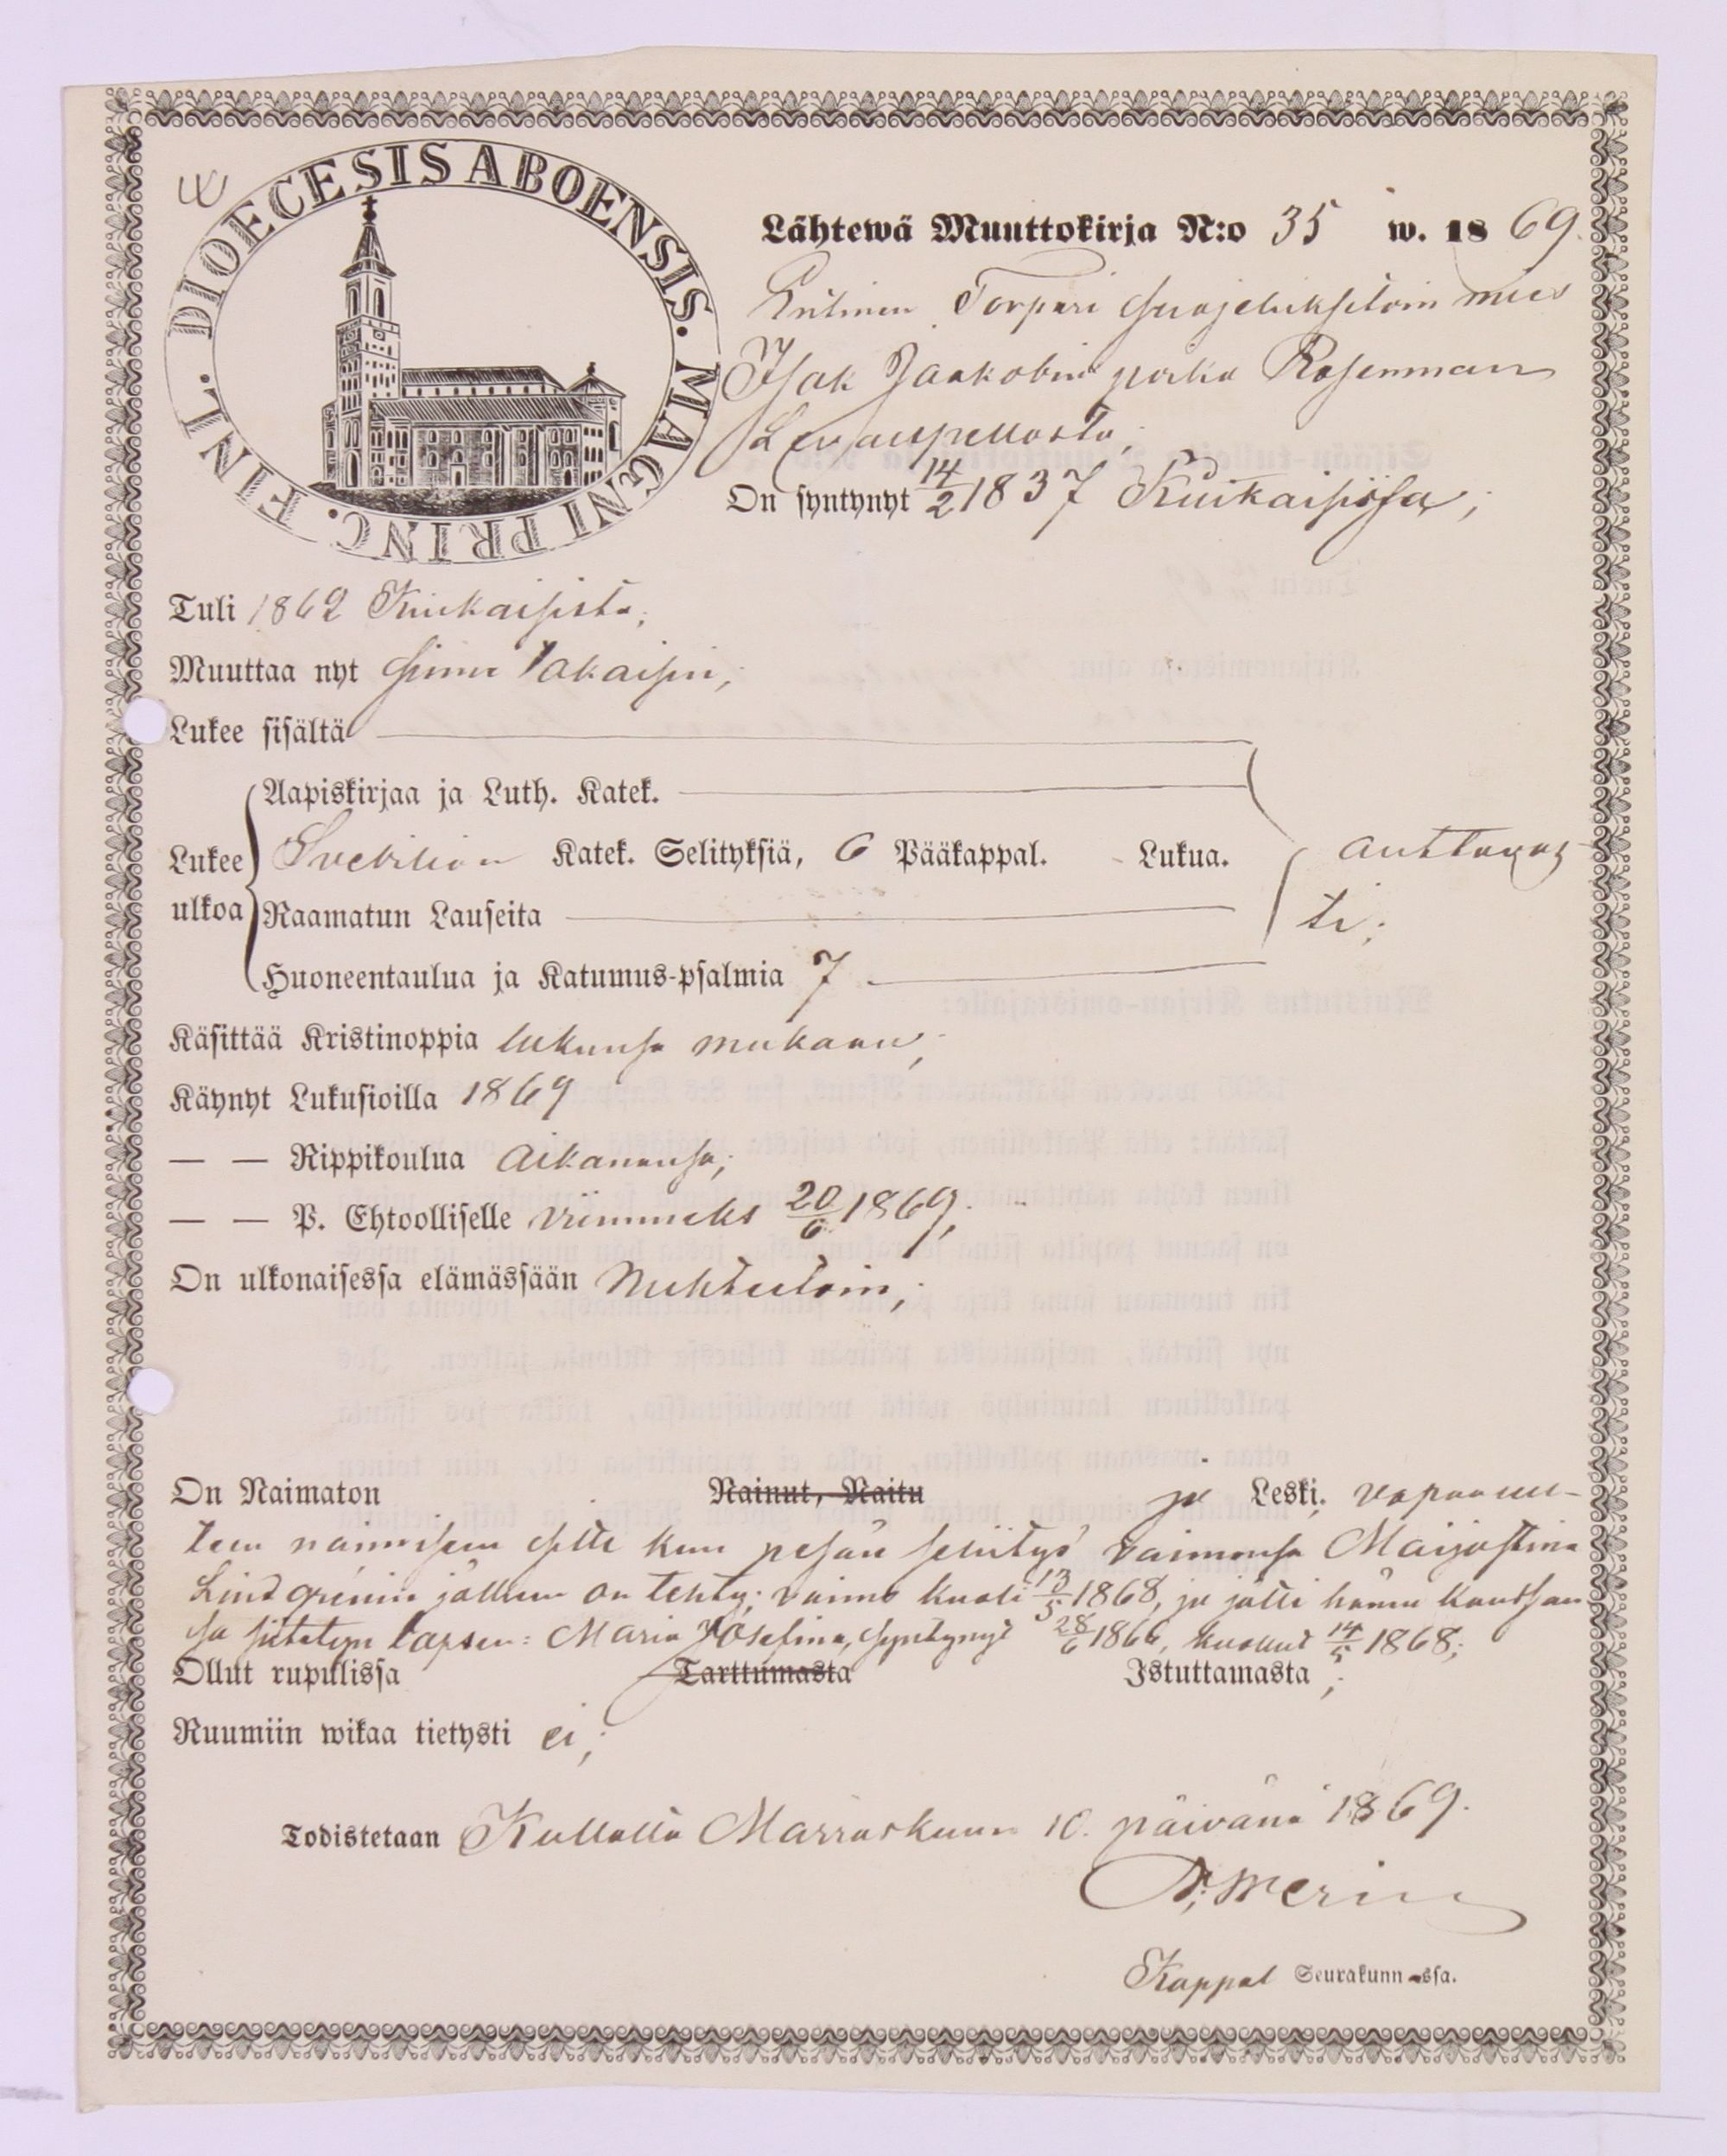 DIOECESIS ABOENSIS. MAGNI PRINC. FINL.
Lähtewä Muuttokirja N:o 35 w. 1869.
Entinen Torpari suojeluksetoin mies
Isak Jaakobin poika Rosenman
Levanpellosta;
On syntynyt 14/2 1837 Kiukaisissa;
Tuli 1862 Kiukaisista;
Muuttaa nyt sinne takaisin;
Lukee sisältä
Aapiskirjaa ja Luth. Katek.
Lukee ulkoa Svebilion Katek. Selityksiä, 6 Pääkappal. - Lukua. auttavas-
Raamatun Lauseita ti;
Huoneentaulua ja Katumus-psalmia 7
Käsittää Kristinoppia lukunsa mukaan;
Käynyt Lukusioilla 1869
— — Rippikoulua Aikanansa;
— — P. Ehtoolliselle viimmeks 20/6 1869;
On ulkonaisessa elämässään Nuhteetoin;
On Naimaton Nainut, Naitu ja Leski; vapa uu-
teen naimiseen sitte kun pesän selvitys vaimonsa Maijastina
Lindgrenin jälkeen on tehty; vaimo kuoli 13/5 1868, ja jätti hänen kanssan
sa siitetyn lapsen: Maria Josefina, syntynyt 28/6 1866, kuollut 14/5 1868;
Ollut rupulissa Tarttumasta Istuttamasta;
Ruumiin wikaa tietysti ei;
Todistetaan Kullalla Marraskuun 10. päivänä 1869.
Kappal Seurakunn-ssa.